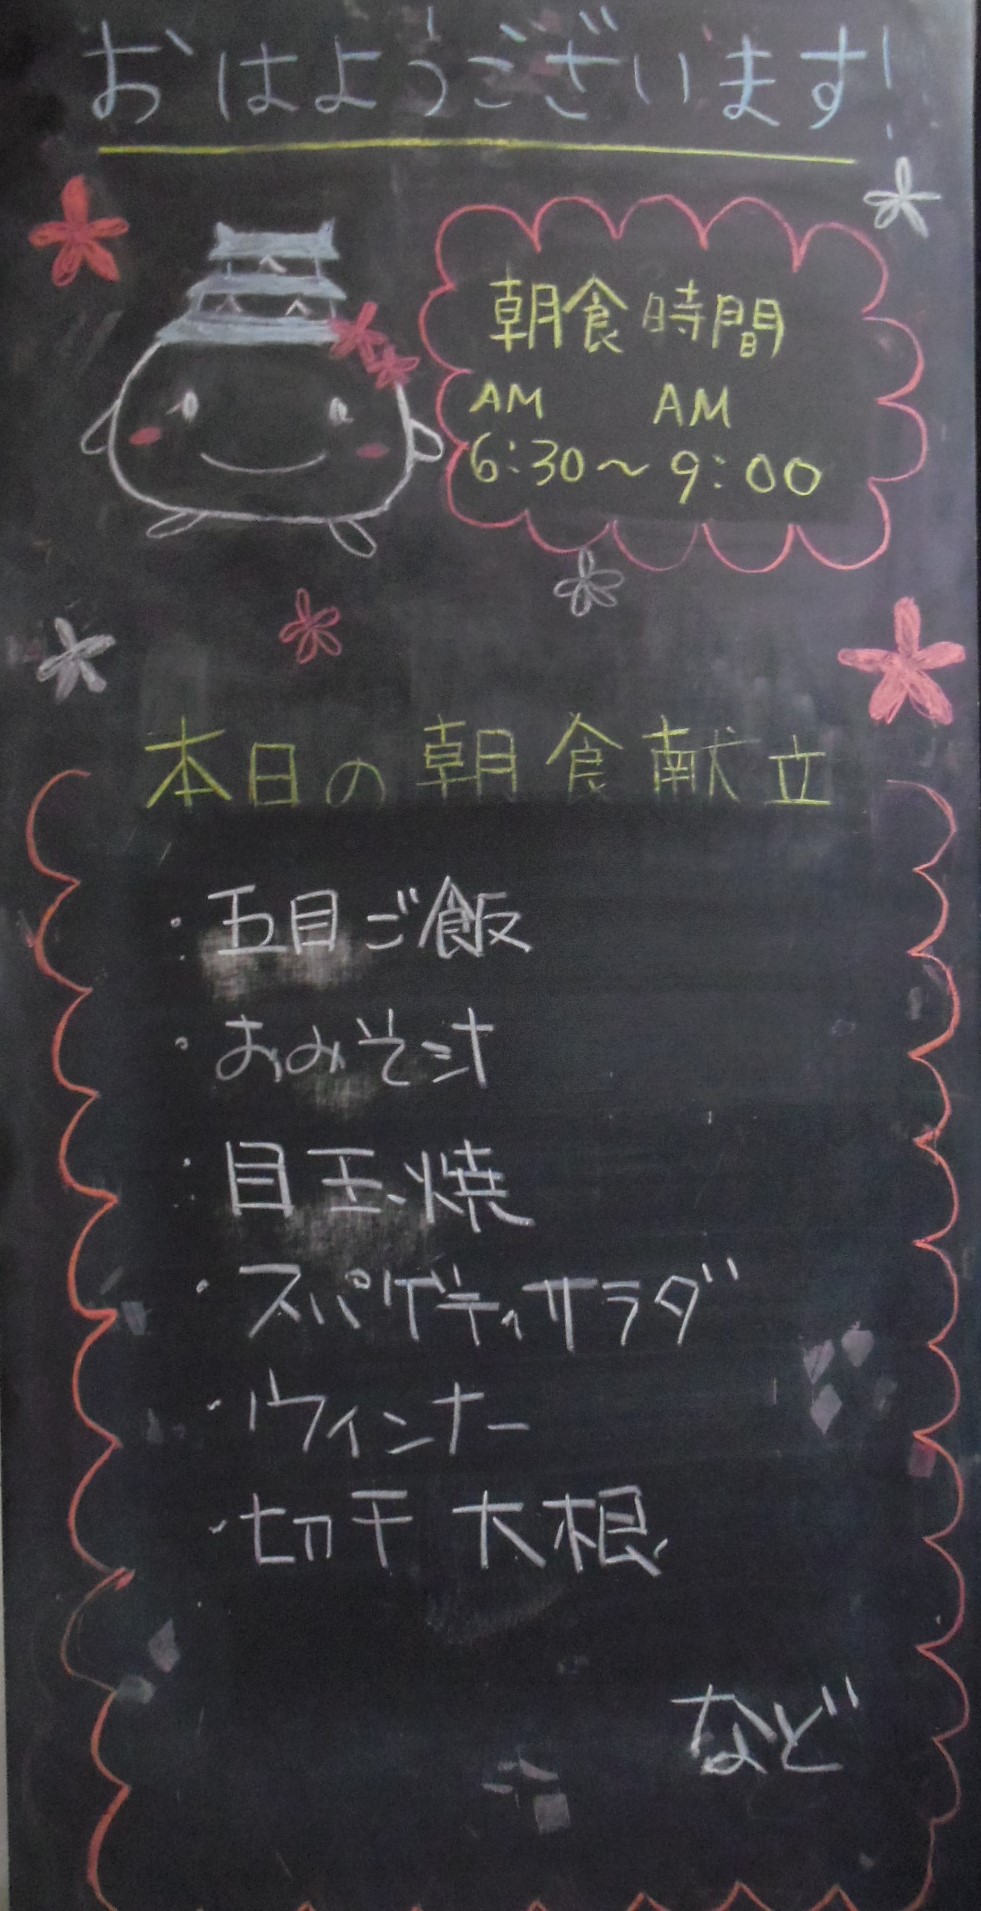 おはようございます!
朝食時間
AM AM
6:30～9:00
本日の朝食献立
・五目ご飯
・おみそ汁
・目玉焼
・スパゲティサラダ
・ウィンナー
・切干大根
など